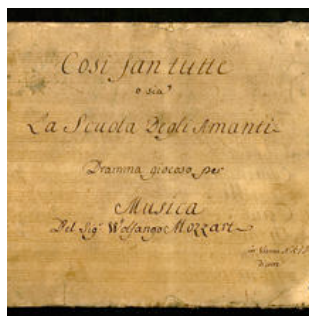 Cosi fan tutte
o sia
La Scuola Degli Amanti
Dramma giocoso per
Musica
Del Sigr Wolfango Mozzart
in